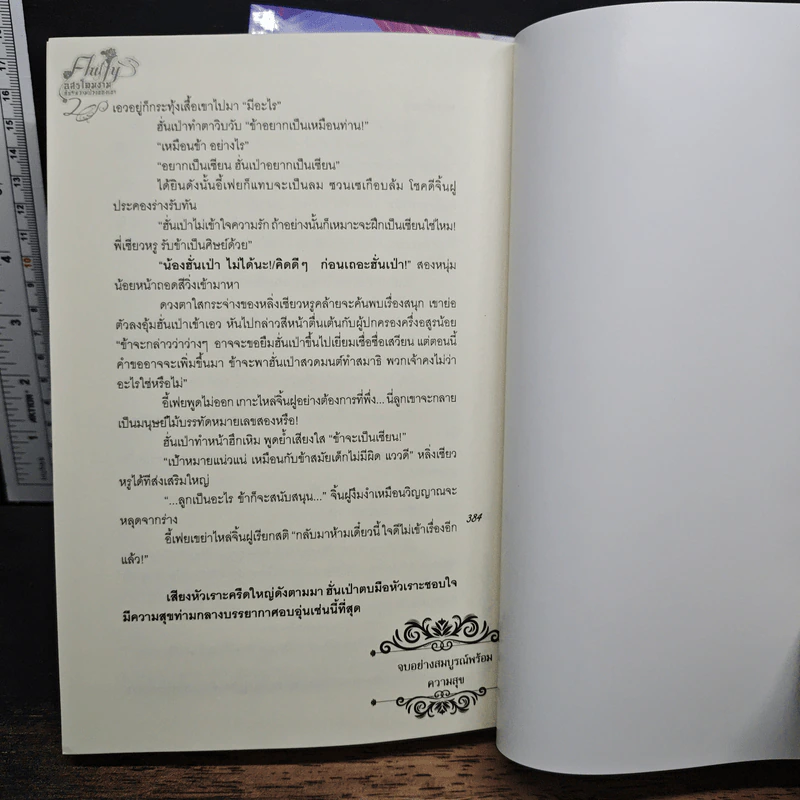 Fluffy
อสูรโฉมงาม
2
เอวอยู่ก็กระทุ้งเสื้อเขาไปมา “มีอะไร”
ฮั่นเป่าทำตาวิบวับ “ข้าอยากเป็นเหมือนท่าน!”
“เหมือนข้า อย่างไร”
“อยากเป็นเซียน ฮั่นเป่าอยากเป็นเซียน”
ได้ยินดังนั้นอี้เฟยก็แทบจะเป็นลม ซวนเซเกือบล้ม โชคดีจิ้นฝู
ประคองร่างรับทัน
“ฮั่นเป่าไม่เข้าใจความรัก ถ้าอย่างนั้นก็เหมาะจะฝึกเป็นเซียนใช่ไหม!
พี่เซียวหรู รับข้าเป็นศิษย์ด้วย”
“น้องฮั่นเป่า ไม่ได้นะ!/คิดดีๆ ก่อนเถอะฮั่นเป่า!” สองหนุ่ม
น้อยหน้าถอดสีวิ่งเข้ามาหา
ดวงตาใสกระจ่างของหลิ่งเซียวหรูคล้ายจะค้นพบเรื่องสนุก เขาย่อ
ตัวลงอุ้มฮั่นเป่าเข้าเอว หันไปกล่าวสีหน้าตื่นเต้นกับผู้ปกครองครึ่งอสูรน้อย
“ข้าจะกล่าวว่าว่างๆ อาจจะขอยืมฮั่นเป่าขึ้นไปเยี่ยมเซื่อซื่อเสวียน แต่ตอนนี้
คำขออาจจะเพิ่มขึ้นมา ข้าจะพาฮั่นเป่าสวดมนต์ทำสมาธิ พวกเจ้าคงไม่ว่า
อะไรใช่หรือไม่”
อี้เฟยพูดไม่ออก เกาะไหล่จิ้นฝูอย่างต้องการที่พึ่ง...นี่ลูกเขาจะกลาย
เป็นมนุษย์ไม้บรรทัดหมายเลขสองหรือ!
ฮั่นเป่าทำหน้าฮึกเหิม พูดย้ำเสียงใส “ข้าจะเป็นเซียน!”
“เป้าหมายแน่วแน่ เหมือนกับข้าสมัยเด็กไม่มีผิด แววดี” หลิ่งเซียว
หรูได้ทีส่งเสริมใหญ่
“...ลูกเป็นอะไร ข้าก็จะสนับสนุน...” จิ้นฝูงึมงำเหมือนวิญญาณจะ
หลุดจากร่าง
อี้เฟยเขย่าไหล่จิ้นฝูเรียกสติ “กลับมาห้ามเดี๋ยวนี้ ใจดีไม่เข้าเรื่องอีก
แล้ว!”
384
เสียงหัวเราะครืดใหญ่ดังตามมา ฮั่นเป่าตบมือหัวเราะชอบใจ
มีความสุขท่ามกลางบรรยากาศอบอุ่นเช่นนี้ที่สุด
จบอย่างสมบูรณ์พร้อม
ความสุข